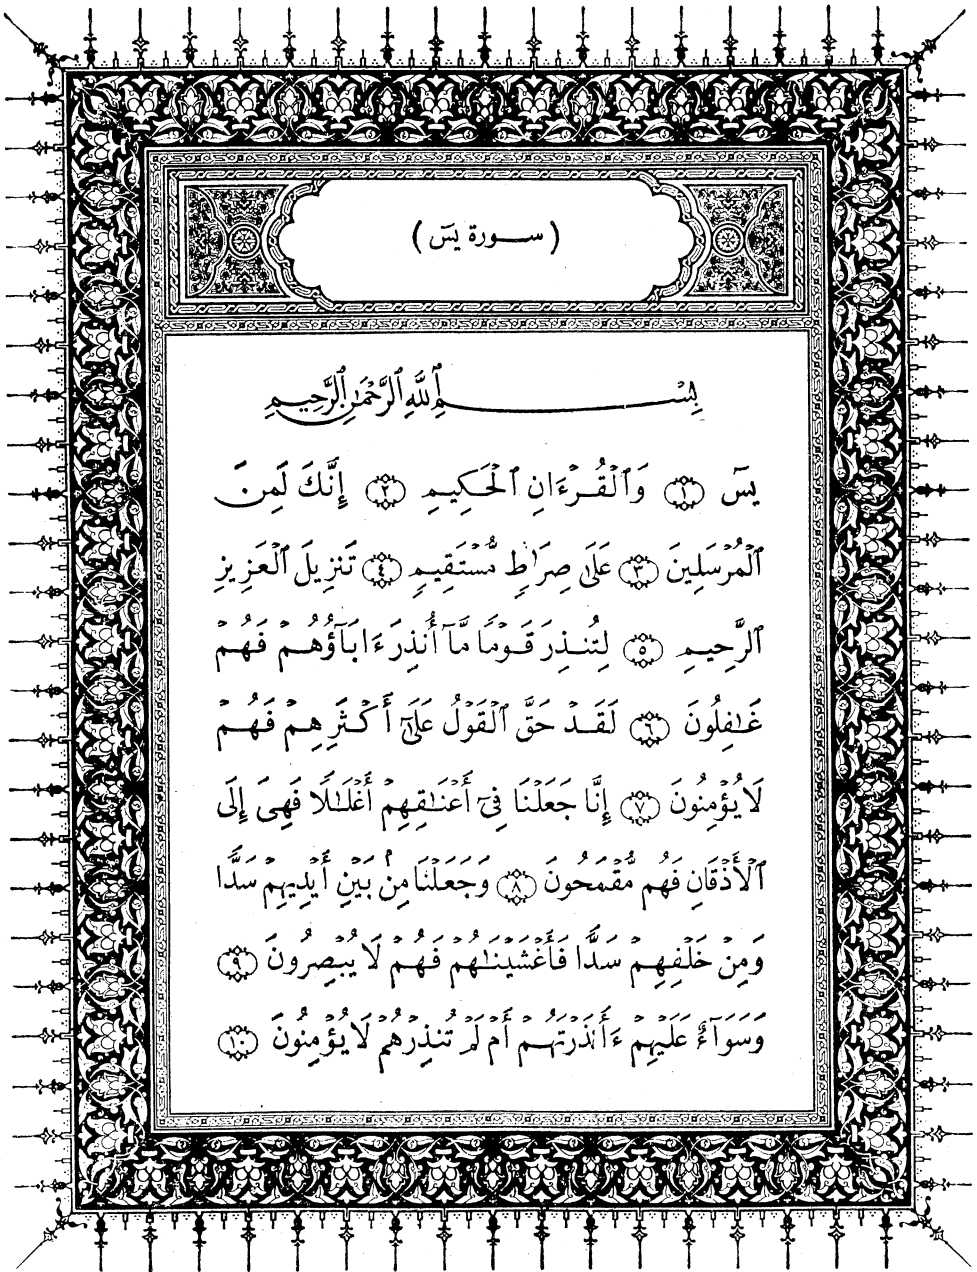 ( سورة يسٓ )
بِسْمِ ٱللَّهِ ٱلرَّحْمَٰنِ ٱلرَّحِيمِ
يسٓ ١ وَٱلْقُرْءَانِ ٱلْحَكِيمِ ٢ إِنَّكَ لَمِنَ
ٱلْمُرْسَلِينَ ٣ عَلَىٰ صِرَٰطٍ مُّسْتَقِيمٍ ٤ تَنزِيلَ ٱلْعَزِيزِ
ٱلرَّحِيمِ ٥ لِتُنذِرَ قَوْمًا مَّآ أُنذِرَ ءَابَآؤُهُمْ فَهُمْ
غَٰفِلُونَ ٦ لَقَدْ حَقَّ ٱلْقَوْلُ عَلَىٰٓ أَكْثَرِهِمْ فَهُمْ
لَا يُؤْمِنُونَ ٧ إِنَّا جَعَلْنَا فِىٓ أَعْنَٰقِهِمْ أَغْلَٰلًا فَهِىَ إِلَى
ٱلْأَذْقَانِ فَهُم مُّقْمَحُونَ ٨ وَجَعَلْنَا مِنۢ بَيْنِ أَيْدِيهِمْ سَدًّا
وَمِنْ خَلْفِهِمْ سَدًّا فَأَغْشَيْنَٰهُمْ فَهُمْ لَا يُبْصِرُونَ ٩
وَسَوَآءٌ عَلَيْهِمْ ءَأَنذَرْتَهُمْ أَمْ لَمْ تُنذِرْهُمْ لَا يُؤْمِنُونَ ١٠